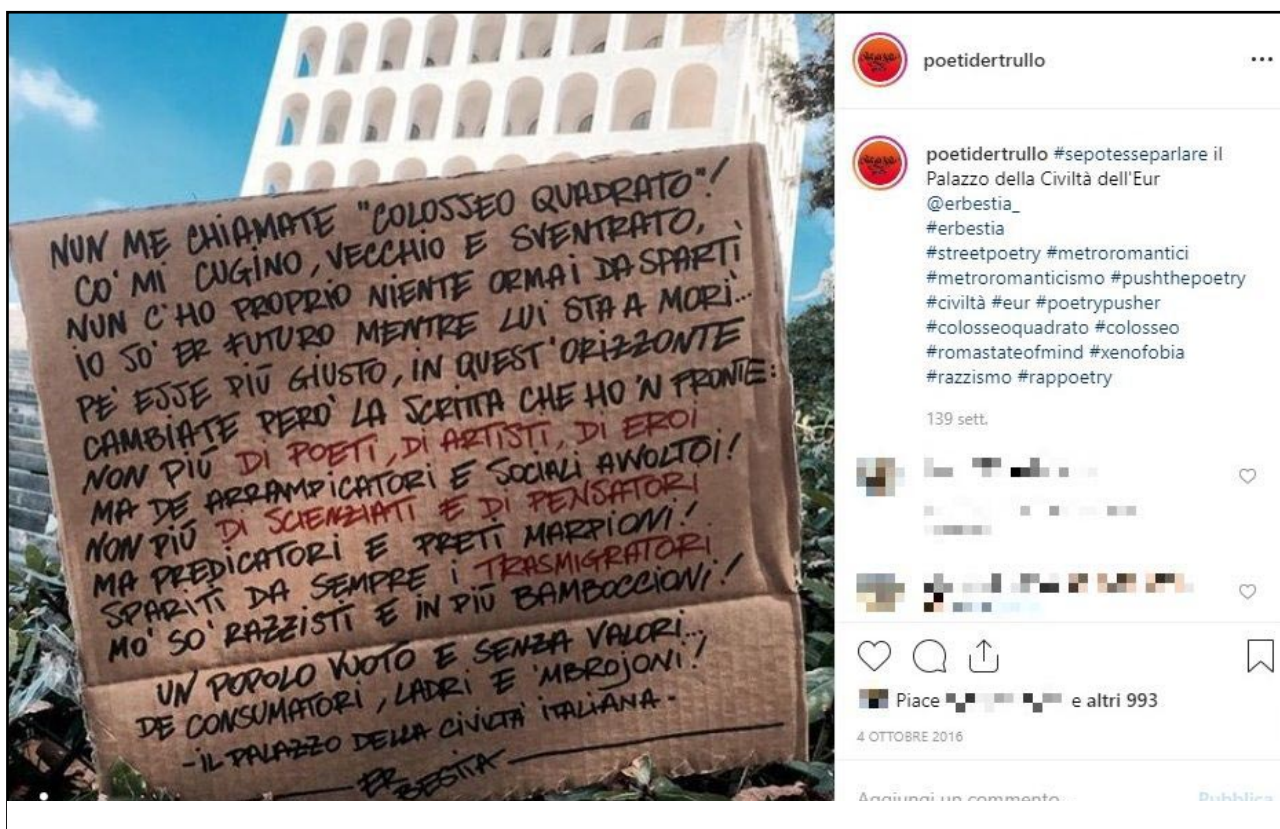 NUN ME CHIAMATE "COLOSSEO QUADRATO"!
CO' MI CUGINO, VECCHIO E SVENTRATO,
NUN C'HO PROPRIO NIENTE ORMAI DA SPARTÌ
IO SO' ER FUTURO MENTRE LUI STA A MORÌ...
PE' ESSE PIÙ GIUSTO, IN QUEST'ORIZZONTE
CAMBIATE PERÒ LA SCRITTA CHE HO 'N FRONTE:
NON PIÙ DI POETI, DI ARTISTI, DI EROI
MA DE ARRAMPICATORI E SOCIALI AVVOLTOI!
NON PIÙ DI SCIENZIATI E DI PENSATORI
MA PREDICATORI E PRETI MARPIONI!
SPARITI DA SEMPRE I TRASMIGRATORI
MO' SO' RAZZISTI E IN PIÙ BAMBOCCIONI!
UN POPOLO VUOTO E SENZA VALORI...
DE CONSUMATORI, LADRI E 'MBROJONI!
- IL PALAZZO DELLA CIVILTÀ ITALIANA -
ER
BESTIA
poetidertrullo
poetidertrullo #sepotesseparlare il
Palazzo della Civiltà dell'Eur
@erbestia_
#erbestia
#streetpoetry #metroromantici
#metroromanticismo #pushthepoetry
#civiltà #eur #poetrypusher
#colosseoquadrato #colosseo
#romastateofmind #xenofobia
#razzismo #rappoetry
139 sett.
Piace e altri 993
4 OTTOBRE 2016
Aggiungi un commento
Pubblica